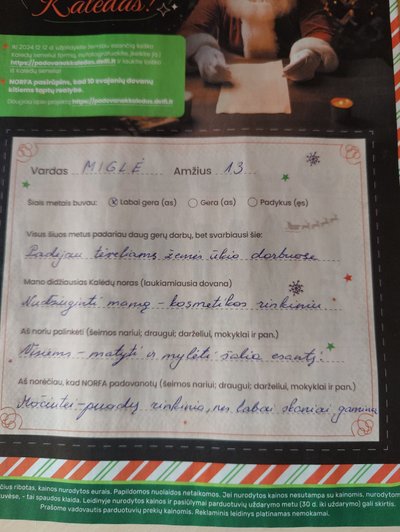 Kalėdas!
Iki 2024 12 12 d. užpildykite žemiau esančią laiško
Kalėdų seneliui formą, nufotografuokite, įkelkite ją į
https://padovanokkaledas.delfi.lt ir laukite laiško
iš Kalėdų Senelio!
NORFA pasirūpins, kad 10 svajonių dovanų
kitiems taptų realybe.
Daugiau apie projektą https://padovanokkaledas.delfi.lt
Vardas MIGLĖ Amžius 13
Šiais metais buvau: Labai gera (as) Gera (as) Padykus (ęs)
Visus šiuos metus padariau daug gerų darbų, bet svarbiausi šie:
Padėjau tėveliams žemės ūkio darbuose
Mano didžiausias Kalėdų noras (laukiamiausia dovana)
Nudžiuginti mamą - kosmetikos rinkiniu
Aš noriu palinkėti (šeimos nariui; draugui; darželiui, mokyklai ir pan.)
Visiems - matyti ir mylėti šalia esantį.
Aš norėčiau, kad NORFA padovanotų (šeimos nariui; draugui; darželiui, mokyklai ir pan.)
Močiutei - puodų rinkinio, nes labai skaniai gamina
čius ribotas, kainos nurodytos eurais. Papildomos nuolaidos netaikomos. Jei nurodytos kainos nesutampa su kainomis, nurodytomis
tuvėse, - tai spaudos klaida. Leidinyje nurodytos kainos ir pasiūlymai parduotuvių uždarymo metu (30 d. iki uždarymo) gali skirtis.
Prašome vadovautis parduotuvių prekių kainomis. Reklaminis leidinys platinamas nemokamai.